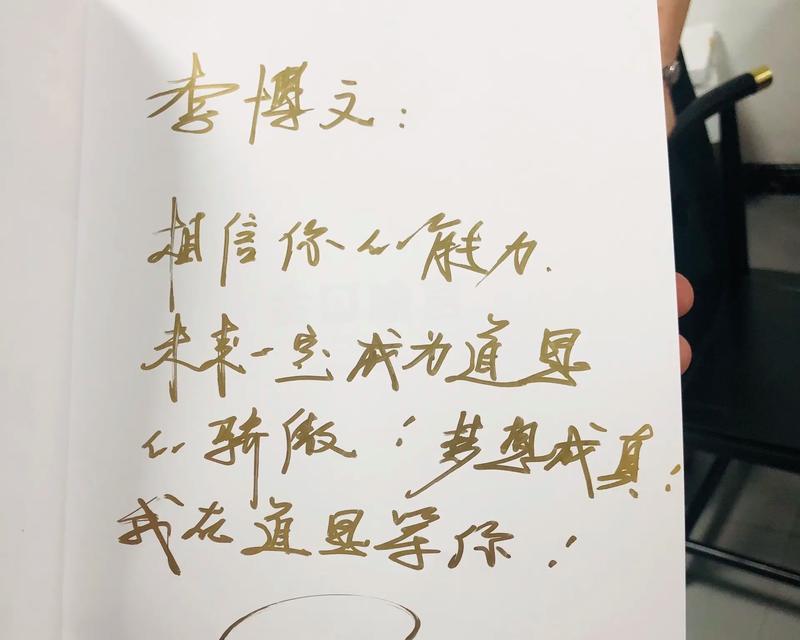 李博文:
相信你的能力.
未来一定成为道县
的骄傲!梦想成真!
我在道县等你!